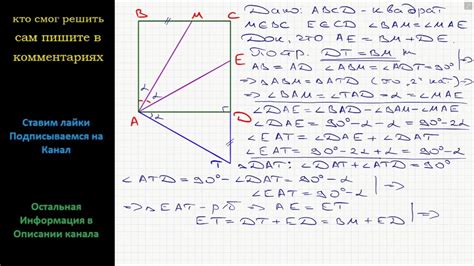 кто смог решить
сам пишите в
комментариях
Ставим лайки
Подписываемся на
Канал
Остальная
Информация в
Описании канала
B M C
E
α
α
A
D
α
T
Дано: ABCD - квадрат
M∈BC E∈CD ∠BAM=∠MAE
Док, что AE = BM + DE.
Постр. DT = BM
AB = AD ∠ABM = ∠ADT = 90°
⇒ △ABM = △ATD (по 2° кат) ⇒
⇒ ∠BAM = ∠TAD = α = ∠MAE
∠DAE = ∠BAD - ∠BAM - ∠MAE
∠DAE = 90° - α - α = 90° - 2α
∠EAT = ∠DAE + ∠DAT
∠EAT = 90° - 2α + α = 90° - α
△DAT: ∠DAT + ∠ATD = 90°
∠ATD = 90° - ∠DAT = 90° - α
∠EAT = 90° - α
⇒ △EAT - р/б ⇒ AE = ET
ET = DT + ED = BM + ED